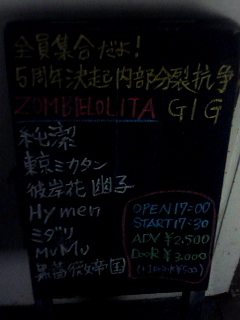 全員集合だよ!
5周年決起内部分裂抗争
ZOMBIELOLITA GIG
純潔
東京ミカタン
彼岸花幽子
Hymen
ミダリ
MuMu
帝国
OPEN 17:00
START 17:30
ADV ¥2,500
DOOR ¥3,000